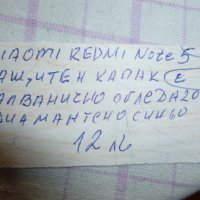 XIAOMI REDMI NOTE 5
ЗАЩИТЕН КАПАК С
ГАЛВАНИЧНО ОГЛЕДАЛО
ДИАМАНТЕНО СИНЬО
12 лв